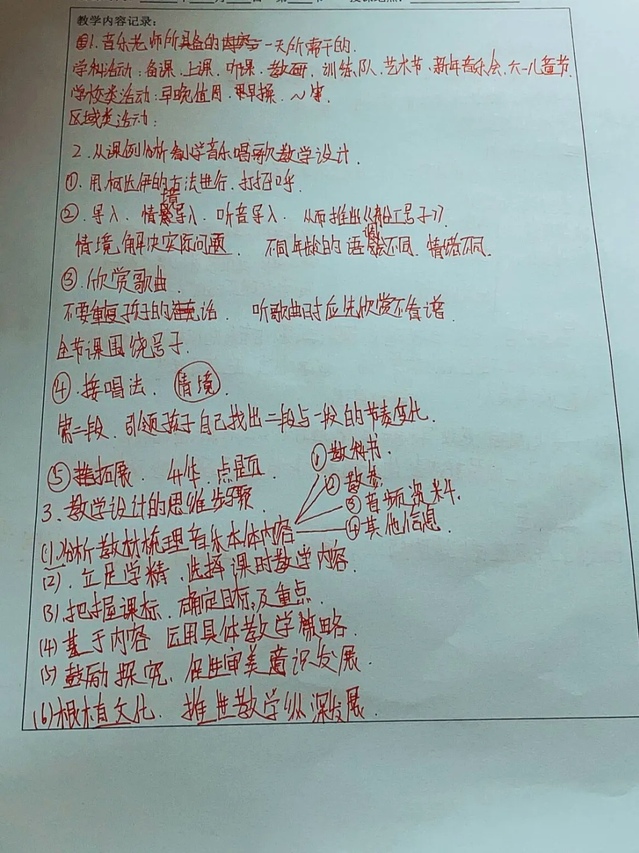 教学内容记录:
1.音乐老师所具备的一天所需干的.
学科活动:备课.上课.听课.教研.训练队.艺术节.新年音乐会.六一儿童节.
学校类活动:早晚值周.早操.～等.
区域类活动:
2.从课例分析看小学音乐唱歌教学设计.
①.用柯达伊的方法进行.打招呼.
②.导入.情境导入.听音导入.从而推出《船工号子》
情境.解决实际问题. 不同年龄的语调不同.情绪不同.
③.欣赏歌曲.
不要重复孩子的话. 听歌曲时应先欣赏不看谱.
全节课围绕号子.
④.接唱法. 情境.
第二段.引领孩子自己找出二段与一段的节奏变化.
⑤拓展. 升华.点题. ①教科书.
②教参.
3.教学设计的思维步骤. ③音频资料.
(1).分析教材梳理音乐本体内容 ④其他信息.
(2).立足学情.选择课时教学内容.
(3)把握课标.确定目标及重点.
(4)基于内容 运用具体教学策略.
(5)鼓励探究.促进审美意识发展.
(6)根植文化.推进教学纵深发展.